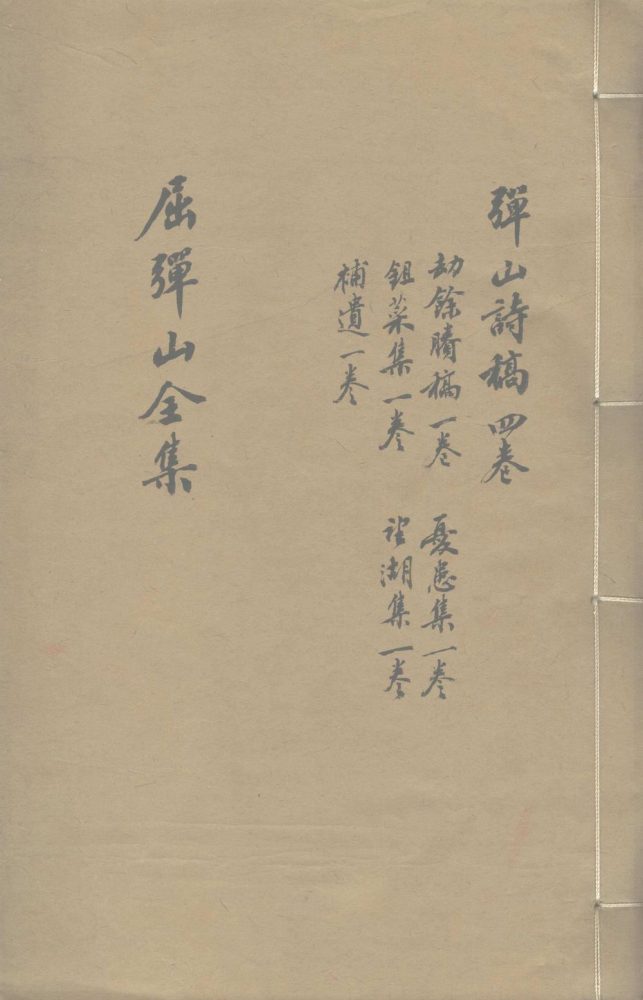 彈山詩稿四卷
劫餘賸稿一卷 憂患集一卷
鉏菜集一卷 望湖集一卷
補遺一卷
屈彈山全集